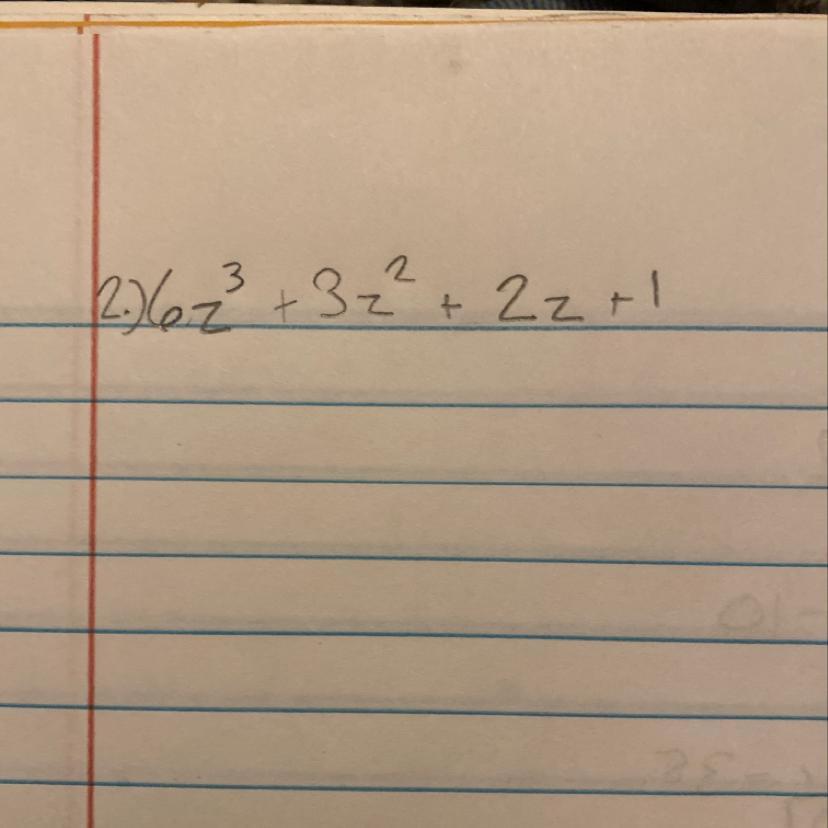 2.) 6z³ + 3z² + 2z + 1